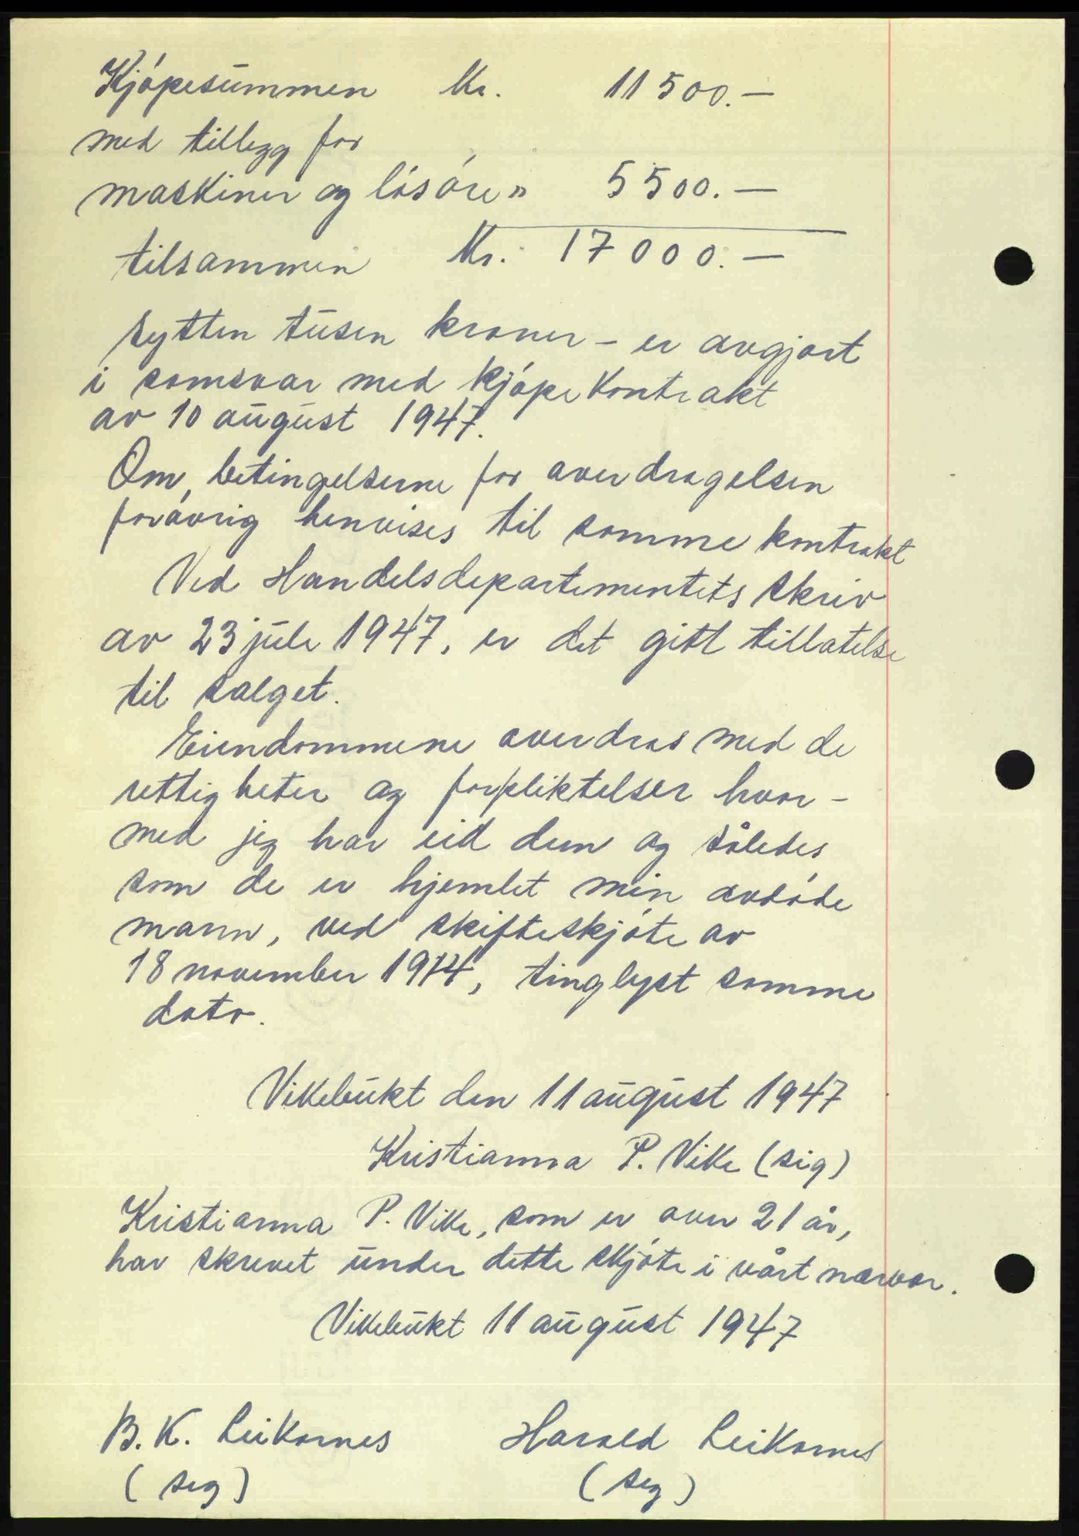 Kjøpesummen Kr. 11 500.—
med tillegg for
maskiner og løsøre " 5 500.—
tilsammen Kr. 17 000.—
sytten tusen kroner - er avgjort
i samsvar med kjøpekontrakt
av 10 august 1947.
Om betingelserne for overdragelsen
forøvrig henvises til samme kontrakt
Ved Handelsdepartementets skriv
av 23 juli 1947, er det gitt tillatelse
til salget.
Eiendommene overdras med de
rettigheter og forpliktelser hvor-
med jeg har eid dem og således
som de er hjemlet min avdøde
mann, ved skifteskjøte av
18 november 1914, tinglyst samme
dato.
Vikebukt den 11 august 1947
Kristianna P. Vike (sig)
Kristianna P. Vike, som er over 21 år,
har skrevet under dette skjøte i vårt nærvær.
Vikebukt 11 august 1947
B. K. Leikarnes Harald Leikarnes
(sig) (sig)